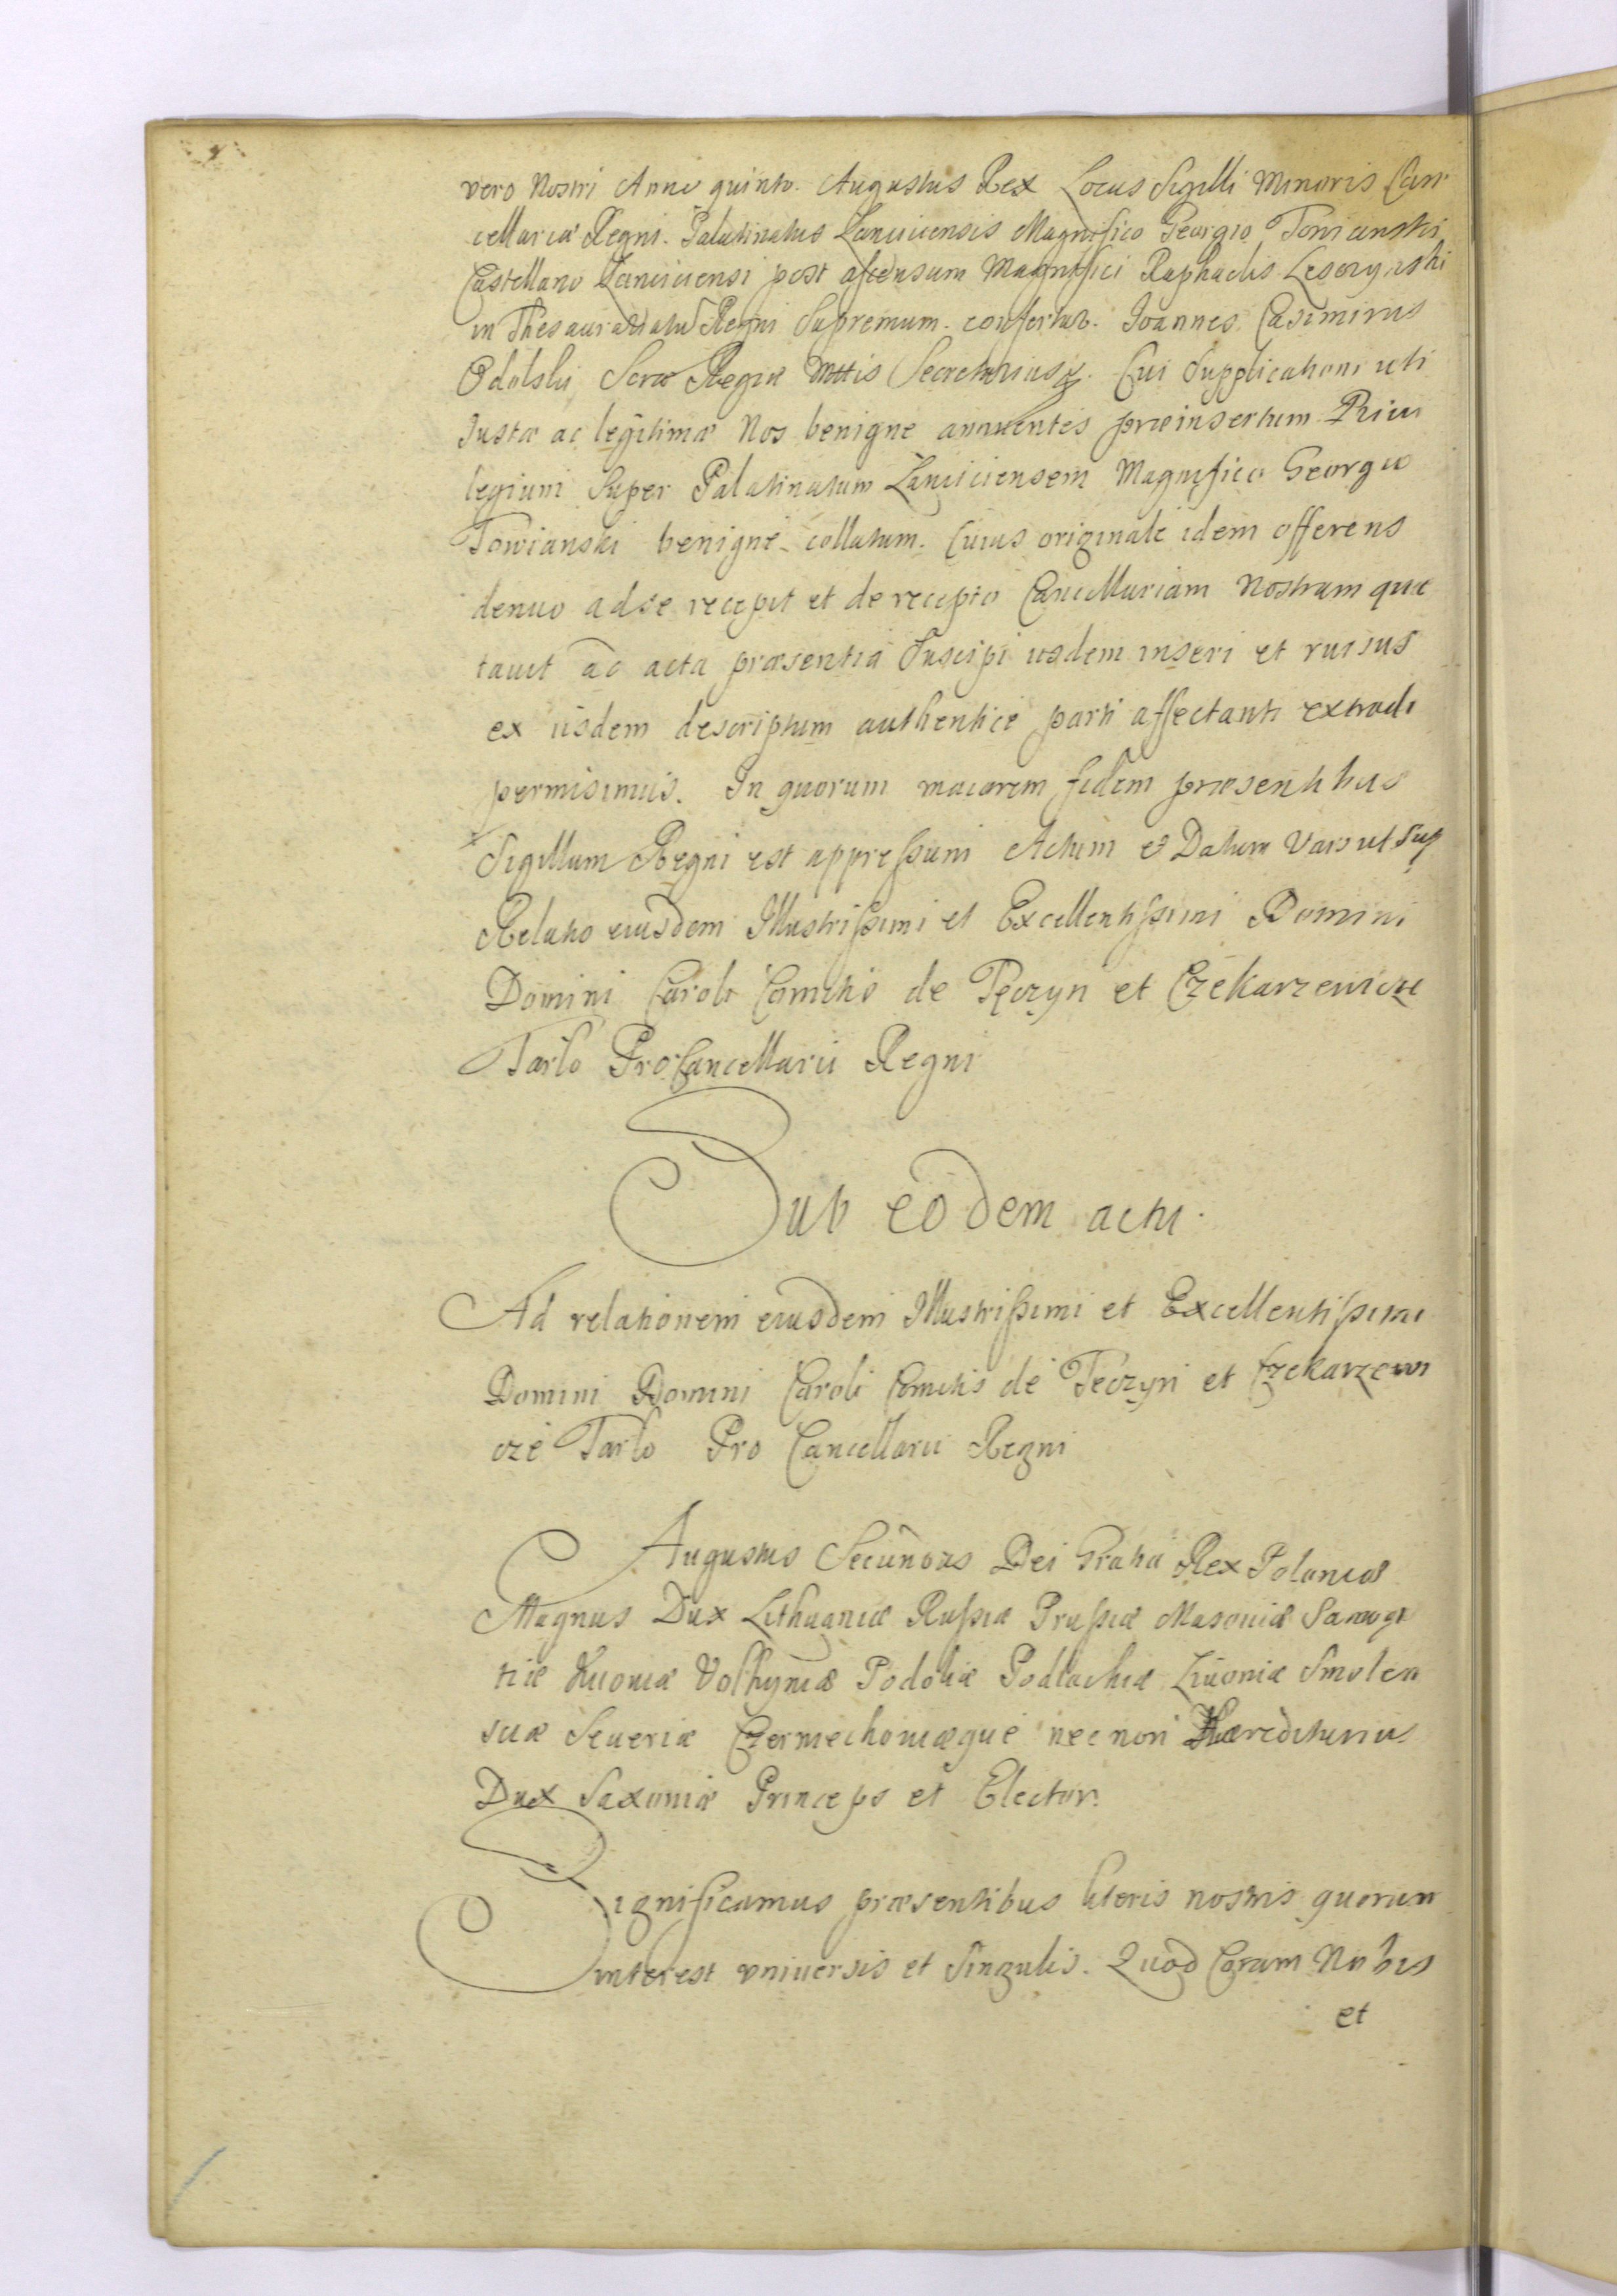 vero Nostri Anno quinto. Augustus Rex Locus Sigilli Minoris Can
cellariæ Regni. Palatinatus Lanciciensis Magnifico Georgio Towianski
Castellano Lanciciensi post ascensum Magnifici Raphaelis Lesczynski
in Thesaurariatu Regni Supremum. confertur. Ioannes Casimirus
Odolski Scræ Regiæ Mttis Secretarius. Cui Supplicationi uti
Iustæ ac legitimæ Nos benigne annuentes præinsertum Priui
legium Super Palatinatum Lanciciensem Magnifico Georgio
Towianski benigne collatum. Cuius originale idem offerens
denuo ad se recepit et de recepto Cancellariam Nostram quie
tauit ac acta præsentia Suscipi iisdem inseri et rursus
ex iisdem descriptum authentice parti affectanti extradi
permisimus. In quorum maiorem fidem præsentibus
Sigillum Regni est appressum Actum et Datum Vars ut sup
Relatio eiusdem Illustrissimi et Excellentissimi Domini
Domini Caroli Comitis de Tęczyn et Czekarzewicze
Tarło Pro Cancellarii Regni
Sub eodem actu.
Ad relationem eiusdem Illustrissimi et Excellentissimi
Domini Domini Caroli Comitis de Teczyn et Czekarzewi
cze Tarło Pro Cancellarii Regni
Augustus Secundus Dei Gratia Rex Poloniæ
Magnus Dux Lithuaniæ Russiæ Prussiæ Masouiæ Samogi
tiæ Kiiouiæ Volhyniæ Podoliæ Podlachiæ Liuoniæ Smolen
sciæ Seueriæ Czerniechouiæque nec non Hæreditarius
Dux Saxoniæ Princeps et Elector.
Significamus præsentibus literis nostris quorum
interest vniuersis et Singulis. Quod Coram Nobis
et